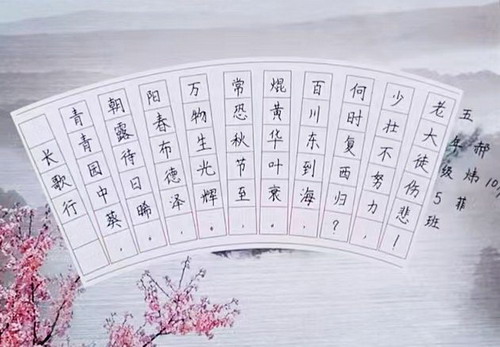 长歌行
青青园中葵，
朝露待日晞。
阳春布德泽，
万物生光辉。
常恐秋节至，
焜黄华叶衰。
百川东到海，
何时复西归？
少壮不努力，
老大徒伤悲！
五年级5班
郝炜菲